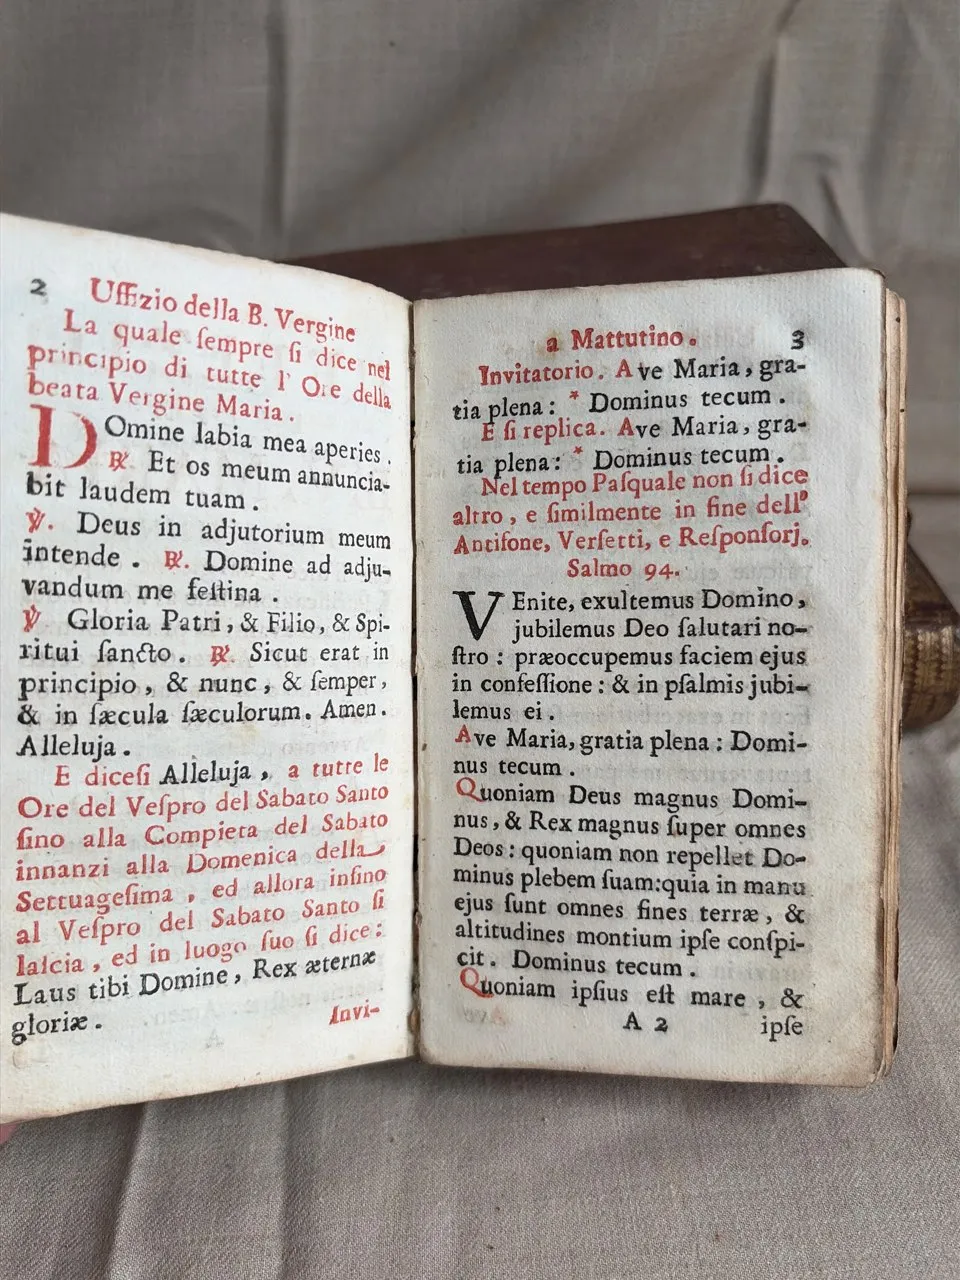 2 Uffizio della B. Vergine
La quale ſempre ſi dice nel
principio di tutte l' Ore della
beata Vergine Maria.
DOmine labia mea aperies.
℟. Et os meum annuncia-
bit laudem tuam.
℣. Deus in adjutorium meum
intende. ℟. Domine ad adju-
vandum me feſtina.
℣ Gloria Patri, & Filio, & Spi-
ritui ſancto. ℟. Sicut erat in
principio, & nunc, & ſemper,
& in ſæcula ſæculorum. Amen.
Alleluja.
E diceſi Alleluja, a tutte le
Ore del Veſpro del Sabato Santo
ſino alla Compieta del Sabato
innanzi alla Domenica della
Settuageſima, ed allora inſino
al Veſpro del Sabato Santo ſi
laſcia, ed in luogo ſuo ſi dice:
Laus tibi Domine, Rex æternæ
gloriæ.
Invi-
a Mattutino. 3
Invitatorio. Ave Maria, gra-
tia plena: * Dominus tecum.
E ſi replica. Ave Maria, gra-
tia plena: * Dominus tecum.
Nel tempo Paſquale non ſi dice
altro, e ſimilmente in fine dell'
Antifone, Verſetti, e Reſponſorj.
Salmo 94.
VEnite, exultemus Domino,
jubilemus Deo ſalutari no-
ſtro: præoccupemus faciem ejus
in confeſſione: & in pſalmis jubi-
lemus ei.
Ave Maria, gratia plena: Domi-
nus tecum.
Quoniam Deus magnus Domi-
nus, & Rex magnus ſuper omnes
Deos: quoniam non repellet Do-
minus plebem ſuam: quia in manu
ejus ſunt omnes fines terræ, &
altitudines montium ipſe conſpi-
cit. Dominus tecum.
Quoniam ipſius eſt mare, &
A 2 ipſe